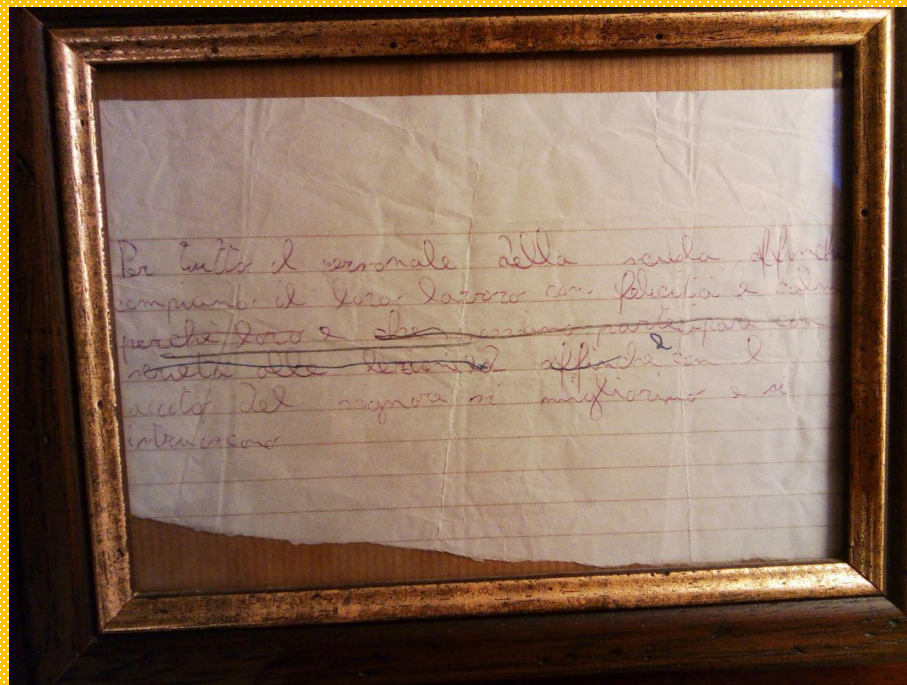 Per tutto il personale della scuola affinche
compiano il loro lavoro con felicità e calm
perchè loro e che possino partecipare con
serietà alle lezioni affinche e con l
aiuto del signore si migliorino e si